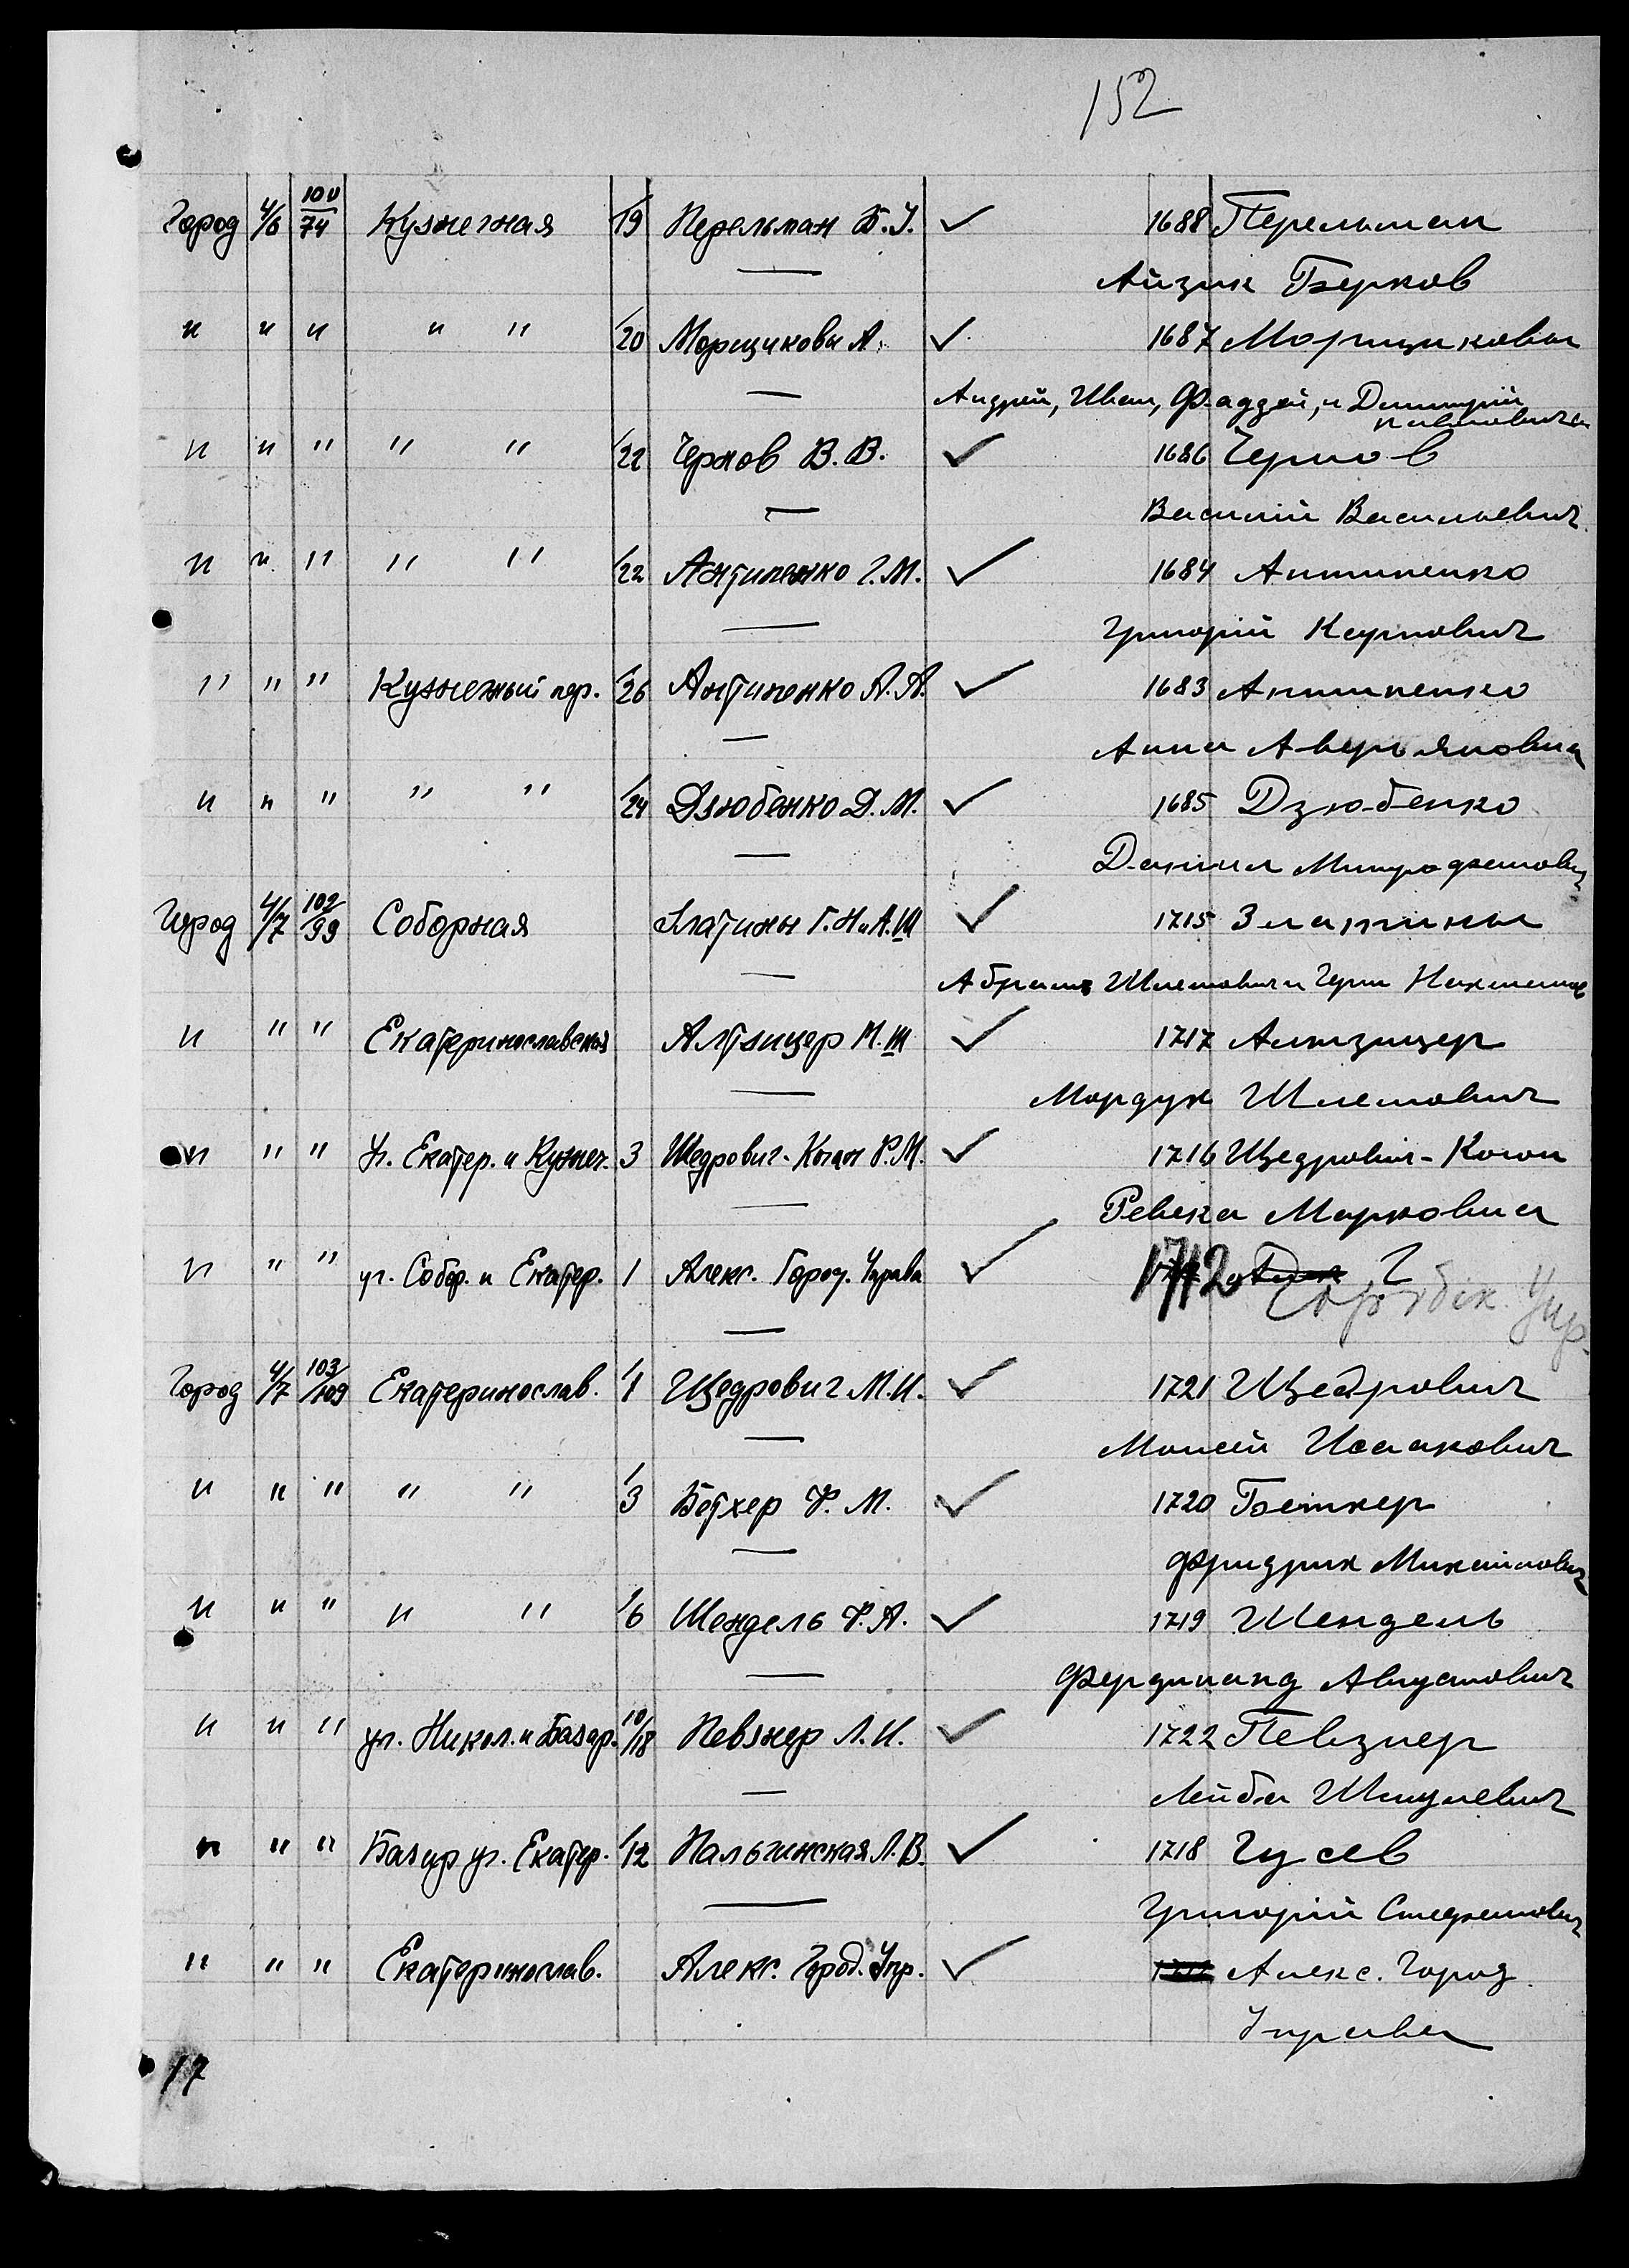 152
Город 4/6 100/74 Кузнечная 19 Перельман Б.I. ✓ 1688 Перельман
Айзик Берков
" " " " " 20 Морщиковы А. ✓ 1687 Морщиковы
Андрей, Иван, Фаддей, и Дмитрий
Павловичи
" " " " " 22 Чернов В.В. ✓ 1686 Чернов
Василий Васильевич
" " " " " 22 Антипенко Г.М. ✓ 1684 Антипенко
Григорій Карпович
" " " Кузнечный пер. 26 Антипенко А.А. ✓ 1683 Антипенко
Анна Аверьяновна
" " " " " 24 Дзюбенко Д.М. ✓ 1685 Дзюбенко
Данил Митрофанович
Город 4/7 102/99 Соборная Златины Г.Н и А.Ш ✓ 1715 Златины
Абрам Шлемович и Герш
" " " Екатеринославская Алтзицер М.Ш ✓ 1717 Алтзицер
Мордух Шлемович
" " " Уг. Екатер. и Кузнеч. 3 Щедрович-Коган Р.М. ✓ 1716 Щедрович-Коган
Ревека Марковна
" " " уг. Собор. и Екатер. 1 Алекс. Город. Управа ✓ 1712
Упр.
Город 4/7 103/109 Екатеринослав. 1 Щедрович М.И. ✓ 1721 Щедрович
Моисей Исаакович
" " " " " 3 Бетхер Ф.М. ✓ 1720 Беткер
Фридрих Михайлович
" " " " " 6 Шендель Ф.А. ✓ 1719 Шендель
Фердинанд Августович
" " " уг. Никол. и Базар. 10/18 Певзнер Л.И. ✓ 1722 Певзнер
Лейба Шмулевич
" " " Базар уг. Екатер. 12 Пальчинская Л.В. ✓ 1718 Гусев
Григорій Стефанович
" " " Екатеринослав. Алекс. Город. Упр. ✓ Алекс. Город.
Управа
17